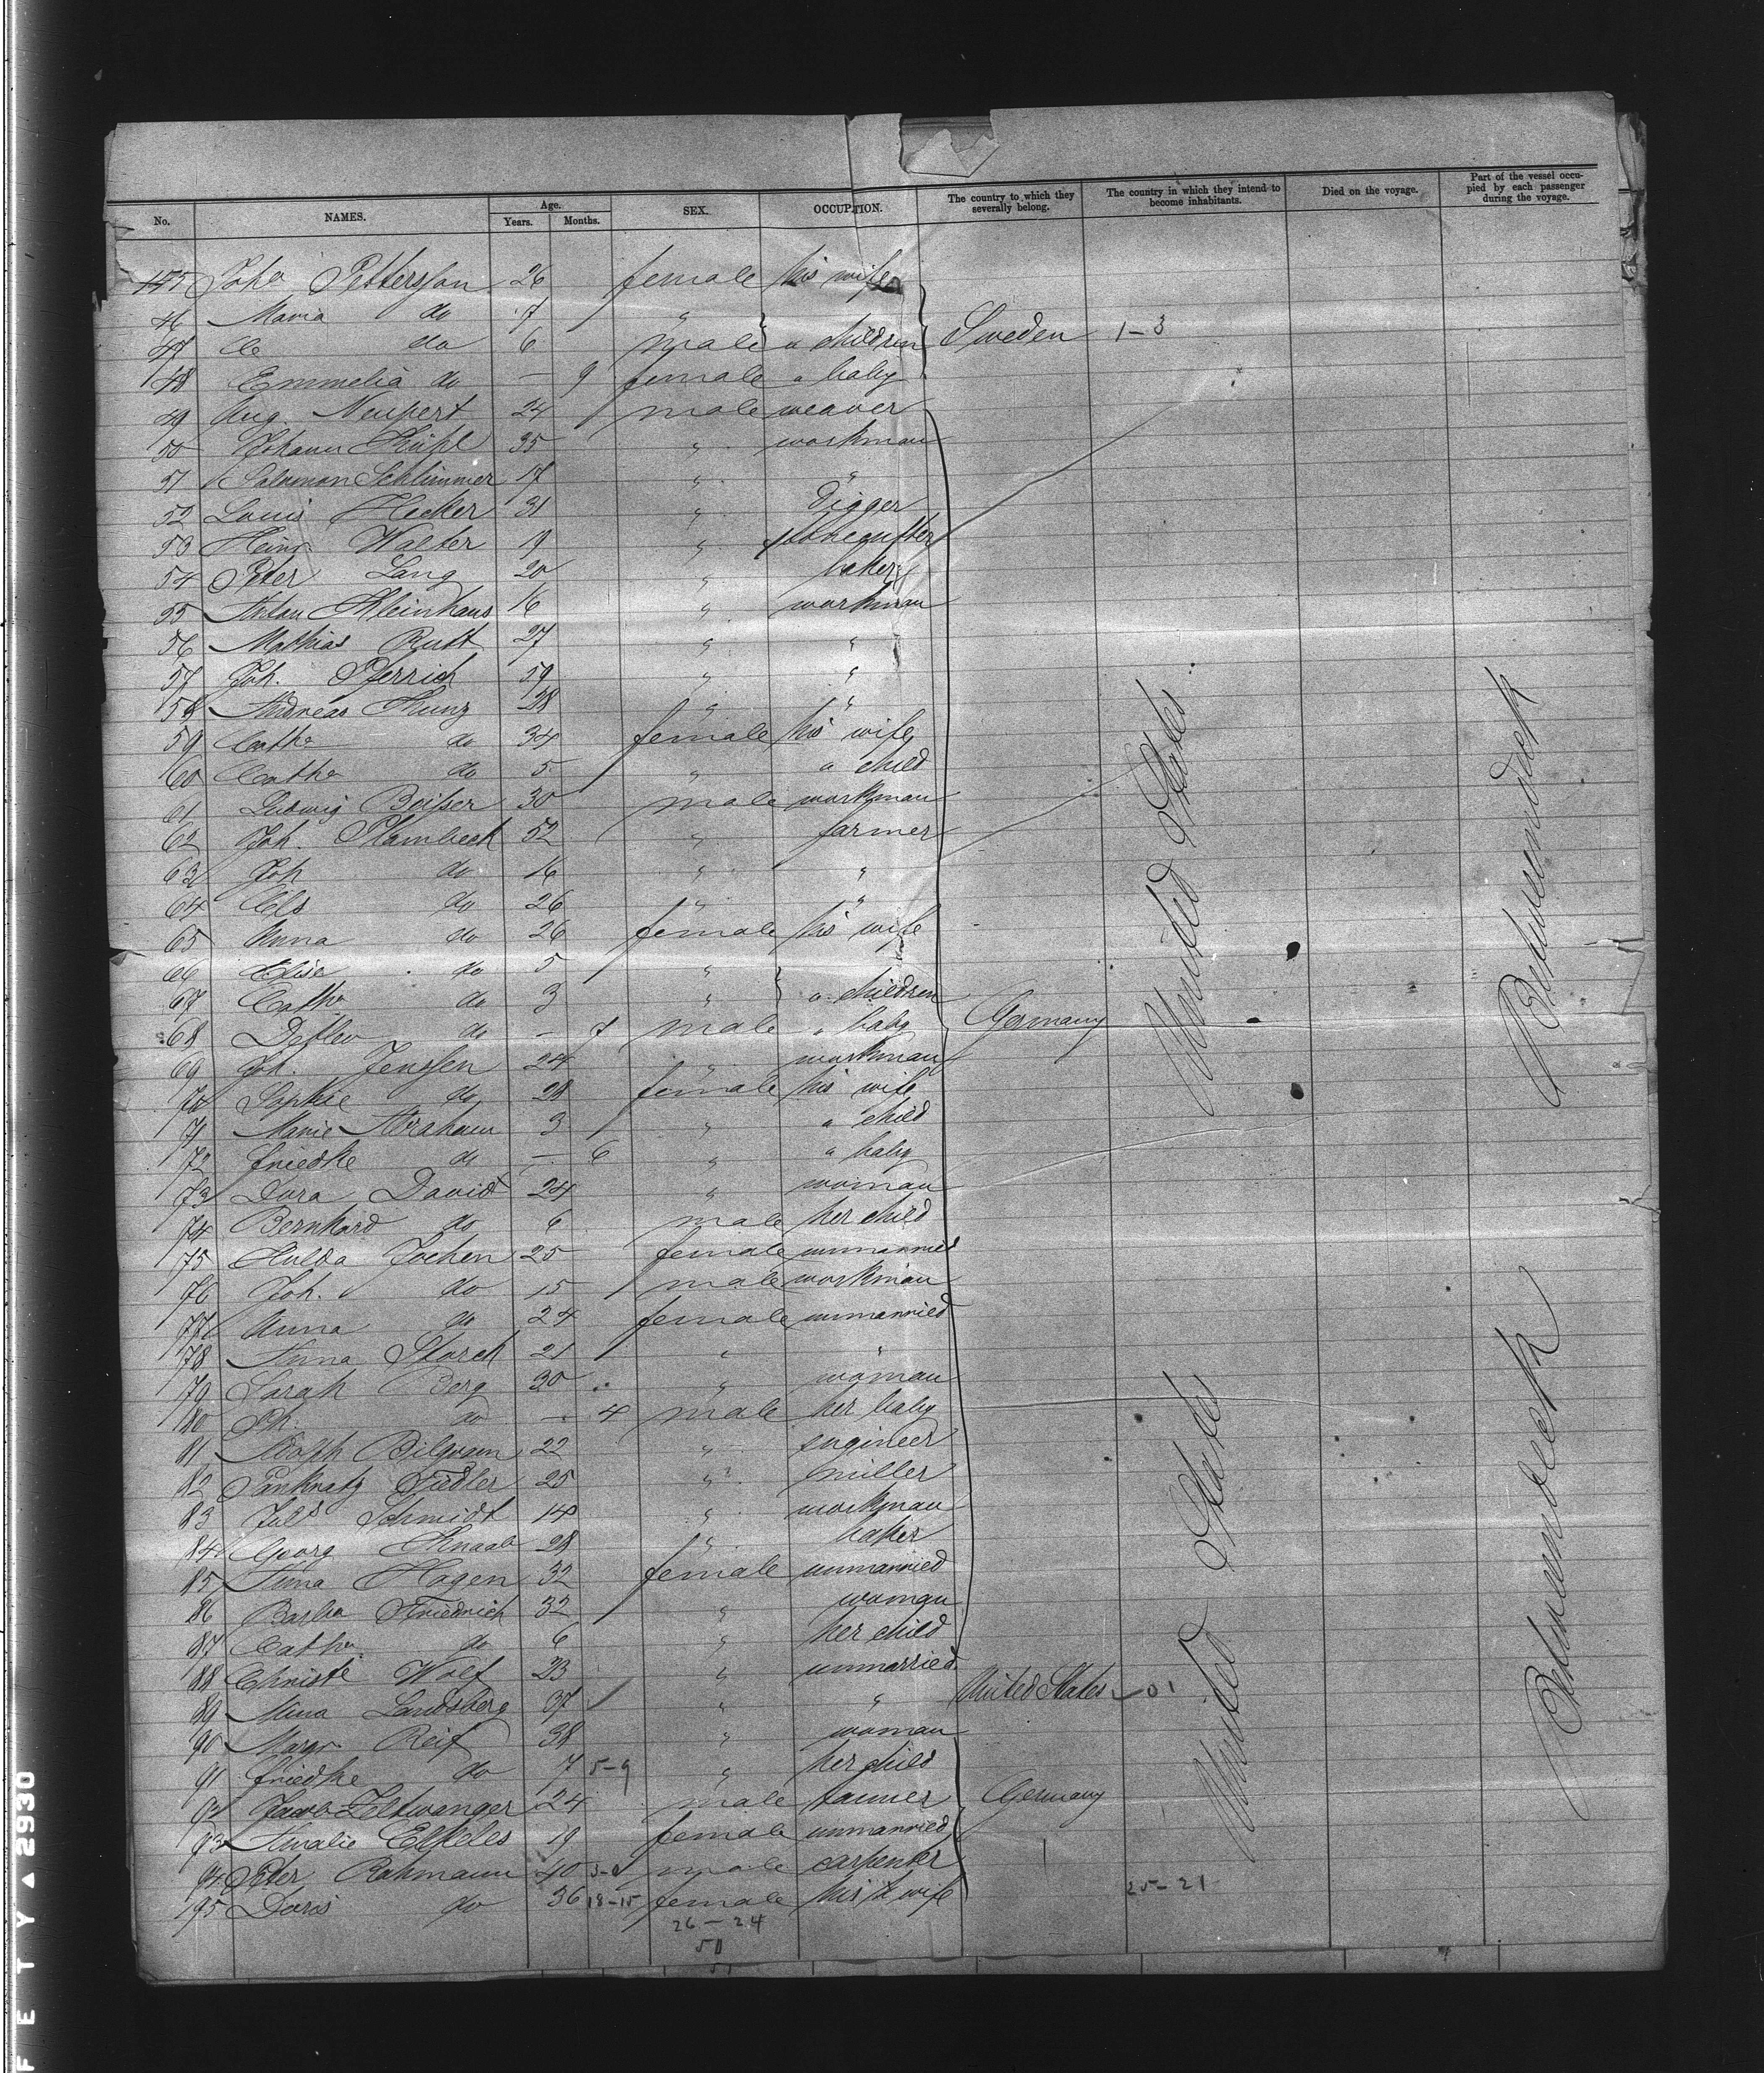 No. NAMES. Age. Years. Months. SEX. OCCUPATION. The country to which they severally belong. The country in which they intend to become inhabitants. Died on the voyage. Part of the vessel occupied by each passenger during the voyage.
145 Joha Pettersson 26 female his wife
46 Maria do 7 "
47 do 6 male a children Sweden 1-3
48 Emmelia do — 9 female a baby
49 Aug Neupert 24 male weaver
50 Johann 35 " workman
51 Salomon Schlimmer 17 " "
52 Louis Hecker 31 " Digger
53 Heinr Walter 19 " stonecutter
54 Peter Lang 20 " baker
55 Anton Kleinhans 16 " workman
56 Mathias Rutt 27 " "
57 Joh. 59 " "
58 Andreas Kunz 28 " "
59 Catha do 34 female his wife
60 Catha do 5 " a child
61 Ludwig 30 male workman
62 Joh. Plambeck 52 " farmer
63 Joh do 16 " "
64 do 26 " "
65 Anna do 26 female his wife
66 Elise do 5 "
67 Catha do 3 " a children
68 Detlev do — 7 male a baby Germany
69 Joh. Jenssen 24 " workman
70 Sophie do 28 female his wife
71 Marie Abraham 3 " a child
72 Friedke do — 6 " a baby
73 Dora David 24 " woman
74 Bernhard do 6 male her child
75 Hulda Jochen 25 female unmarried
76 Joh. do 15 male workman
77 Anna do 24 female unmarried
78 Anna Storch 21 " "
79 Sarah Berg 30 " woman
80 Ph. do — 4 male her baby
81 Adolph 22 " engineer
82 Pankratz Fiedler 25 " miller
83 Juls Schmidt 14 " workman
84 Georg Knaab 28 " baker
85 Anna Hagen 32 female unmarried
86 Barba Friedrich 32 " woman
87 Catha do 6 " her child
88 Christe Wolf 23 " unmarried
89 Mina Landsberg 37 " " United States 01
90 Margr Reif 38 " woman
91 Friedke do 7 5-9 " her child
92 Jacob Zeltwanger 24 male tanner Germany
93 Amalie Elkeles 19 female unmarried
94 Peter Rahmann 40 male carpenter
195 Doris do 36 18-15 female his wife 25-21
26-24
United States
United States
Betweendeck
Betweendeck